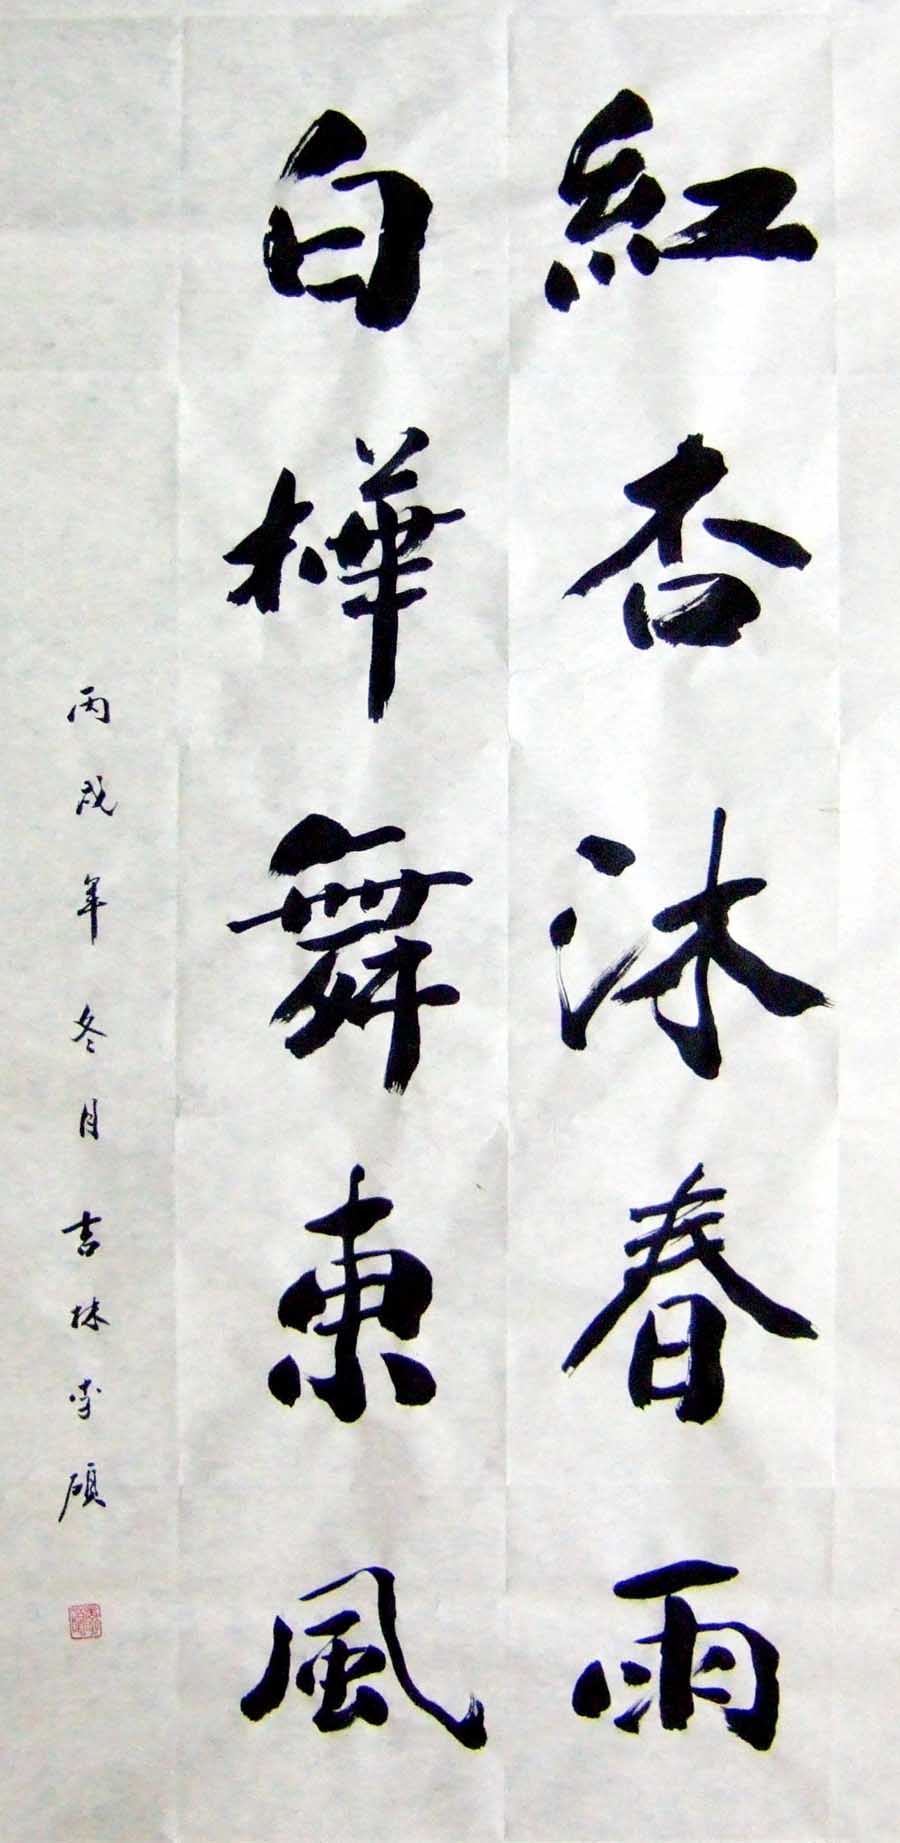 紅杏沐春雨
白樺舞東風
丙戌年冬月吉林李碩